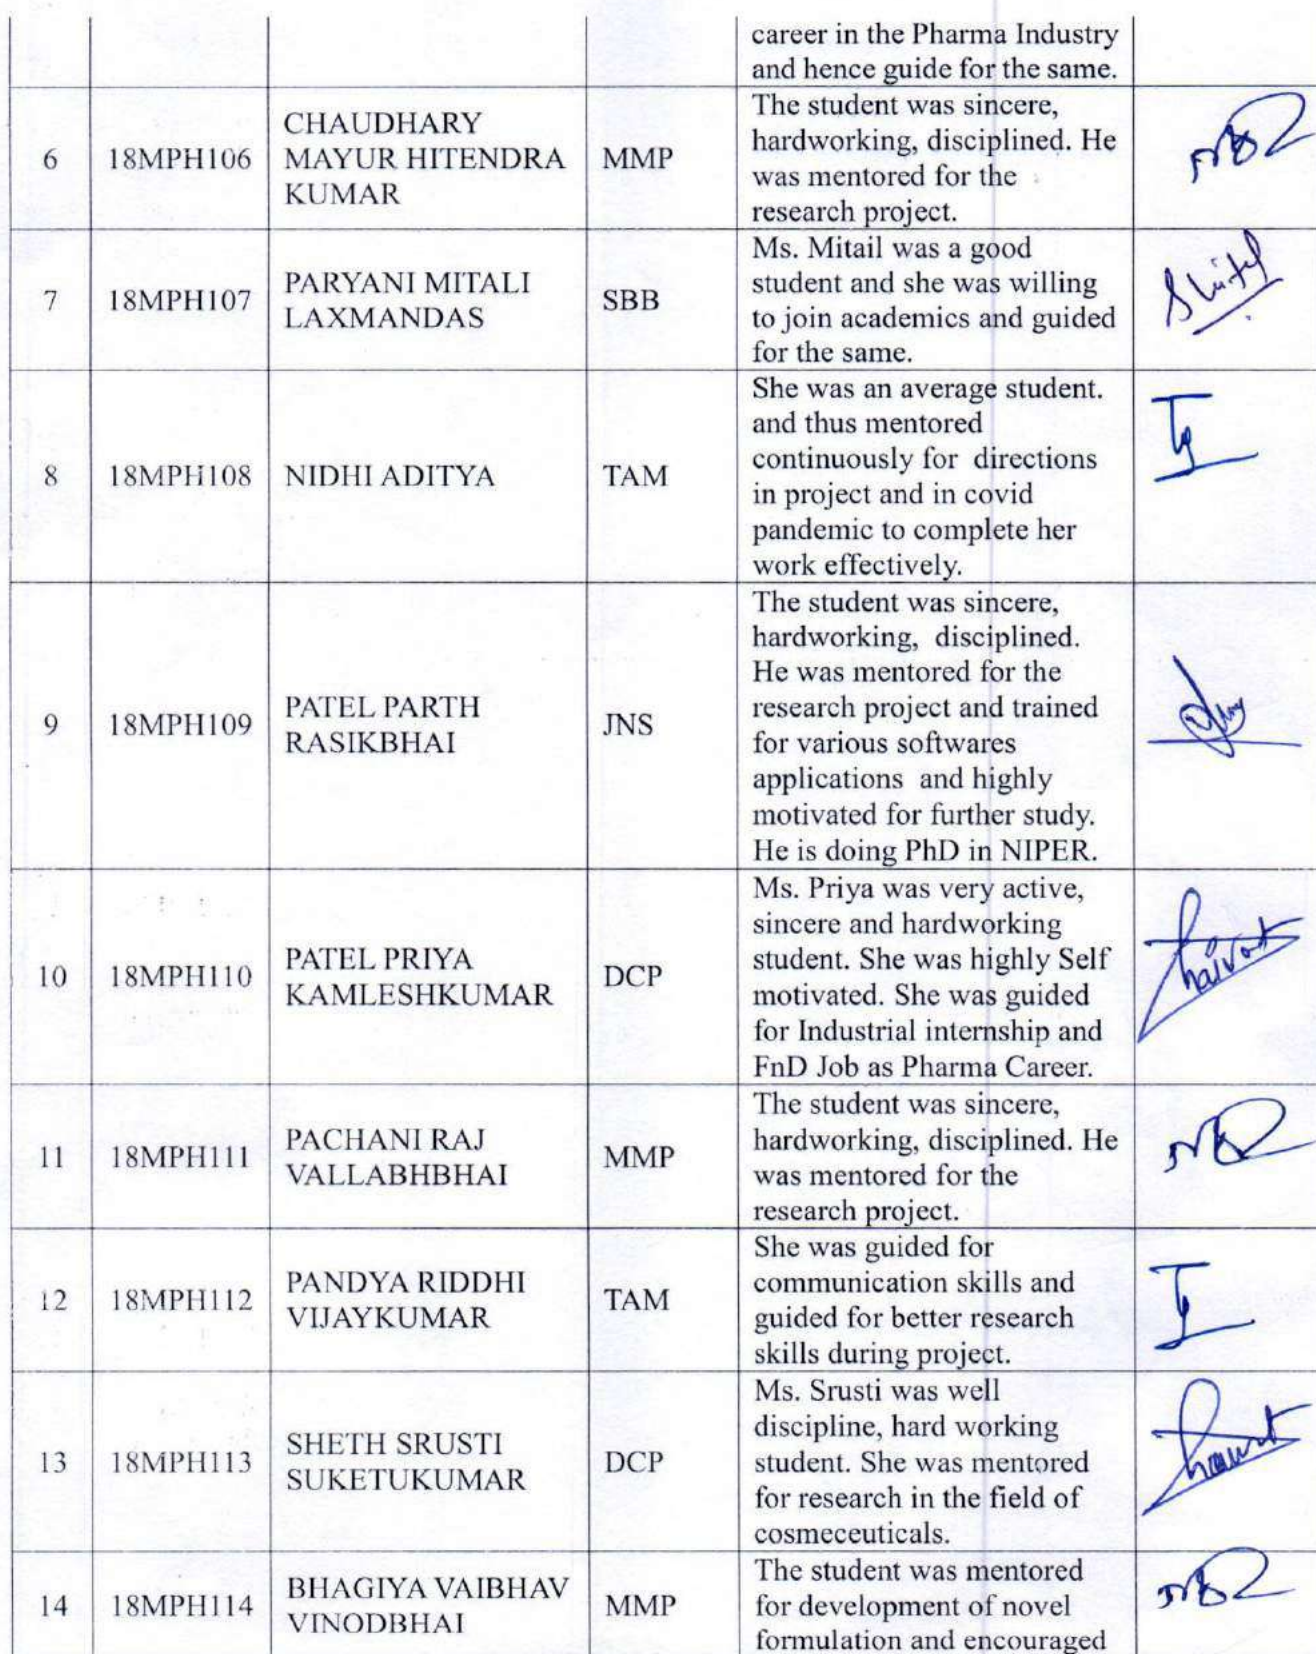 career in the Pharma Industry
and hence guide for the same.
6
18MPH106
CHAUDHARY
MAYUR HITENDRA
KUMAR
MMP
The student was sincere,
hardworking, disciplined. He
was mentored for the
research project.
7
18MPH107
PARYANI MITALI
LAXMANDAS
SBB
Ms. Mitail was a good
student and she was willing
to join academics and guided
for the same.
8
18MPH108
NIDHI ADITYA
TAM
She was an average student.
and thus mentored
continuously for directions
in project and in covid
pandemic to complete her
work effectively.
9
18MPH109
PATEL PARTH
RASIKBHAI
JNS
The student was sincere,
hardworking, disciplined.
He was mentored for the
research project and trained
for various softwares
applications and highly
motivated for further study.
He is doing PhD in NIPER.
10
18MPH110
PATEL PRIYA
KAMLESHKUMAR
DCP
Ms. Priya was very active,
sincere and hardworking
student. She was highly Self
motivated. She was guided
for Industrial internship and
FnD Job as Pharma Career.
11
18MPH111
PACHANI RAJ
VALLABHBHAI
MMP
The student was sincere,
hardworking, disciplined. He
was mentored for the
research project.
12
18MPH112
PANDYA RIDDHI
VIJAYKUMAR
TAM
She was guided for
communication skills and
guided for better research
skills during project.
13
18MPH113
SHETH SRUSTI
SUKETUKUMAR
DCP
Ms. Srusti was well
discipline, hard working
student. She was mentored
for research in the field of
cosmeceuticals.
14
18MPH114
BHAGIYA VAIBHAV
VINODBHAI
MMP
The student was mentored
for development of novel
formulation and encouraged